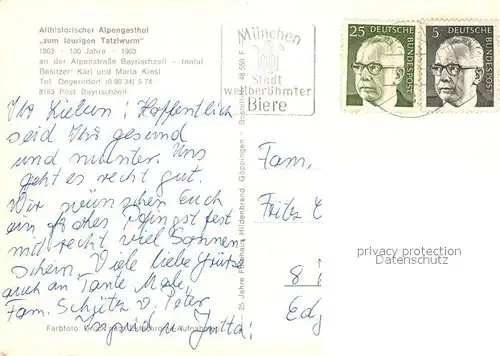 Althistorischer Alpengasthof
„zum feurigen Tatzlwurm“
1863 · 100 Jahre · 1963
an der Alpenstraße Bayrischzell – Inntal
Besitzer: Karl und Maria Kiesl
Tel. Degerndorf (0 80 34) 5 74
8163 Post Bayrischzell
München
Stadt
weltberühmter
Biere
25 DEUTSCHE BUNDESPOST
5 DEUTSCHE BUNDESPOST
Ihr Lieben! Hoffentlich
seid Ihr gesund
und munter. Uns
geht es recht gut.
Wir wünschen Euch
ein frohes Pfingstfest
mit recht viel Sonnen
schein. Viele liebe Grüße
auch an Tante Male,
Fam. Schütz v. Peter
Ingrid u. Jutta!
Fam.
Fritz
8
Farbfoto:
25 Jahre Fotohaus Hildenbrand, Göppingen
48 550 F
privacy protection
Datenschutz